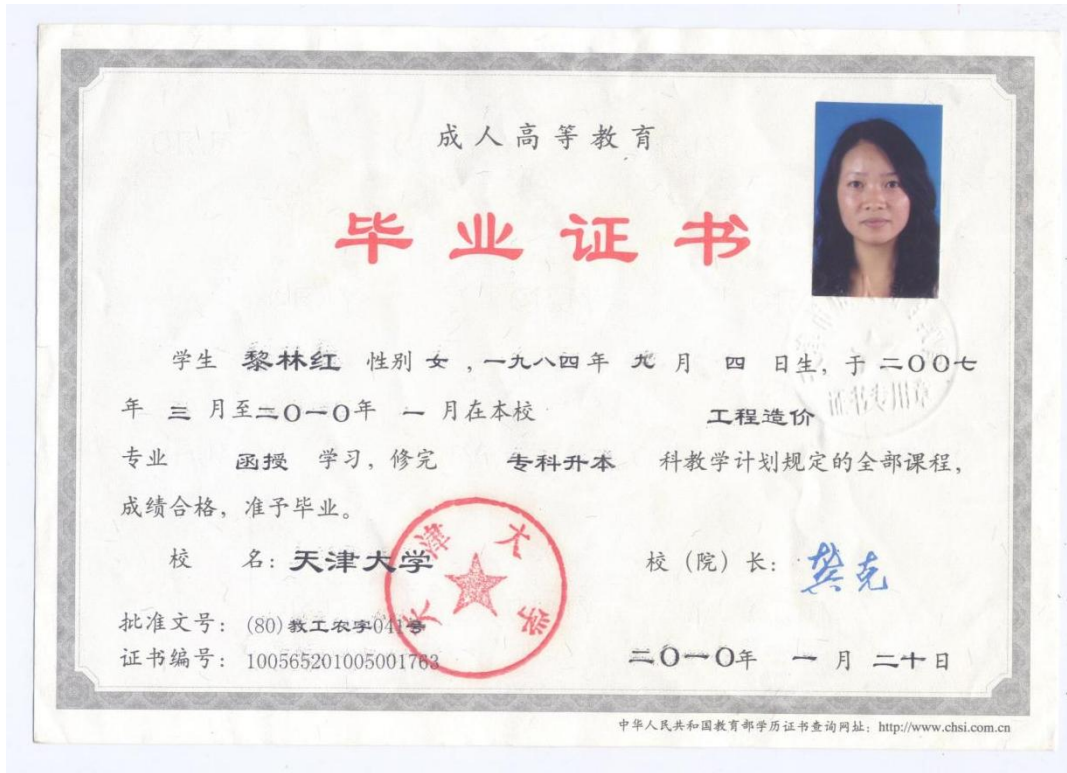 成人高等教育
毕业证书
学生 黎林红 性别 女 ,一九八四年 九 月 四 日生, 于 二〇〇七
年 三 月至二〇一〇年 一 月在本校 工程造价
专业 函授 学习, 修完 专科升本 科教学计划规定的全部课程,
成绩合格, 准予毕业。
校 名: 天津大学 校 (院) 长: 龚克
天津大学
批准文号: (80)教工农字041号
证书编号: 100565201005001763
二〇一〇年 一 月 二十日
中华人民共和国教育部学历证书查询网址: http://www.chsi.com.cn